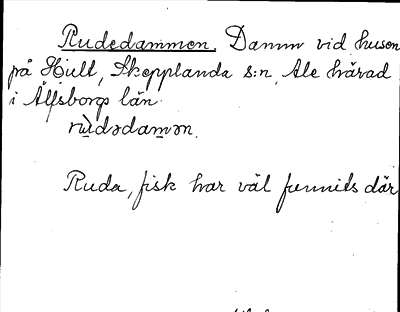 Rudedammen. Damm vid husen
på Hult, Skepplanda s:n, Ale härad
i Älfsborgs län.
rùdədamən.
Ruda, fisk har väl funnits där